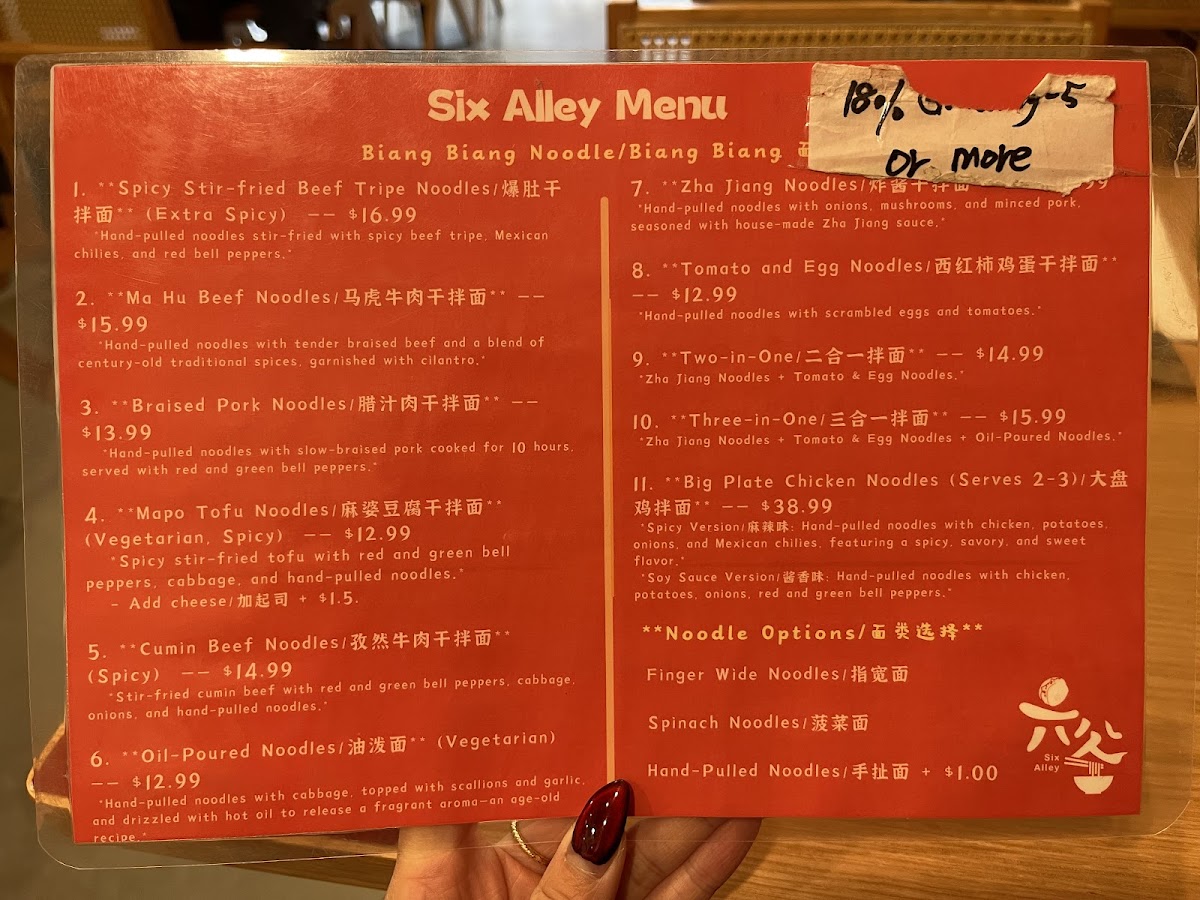 Six Alley Menu
18%
-5
or more
Biang Biang Noodle/Biang Biang
1. **Spicy Stir-fried Beef Tripe Noodles/爆肚干
拌面** (Extra Spicy) -- $16.99
*Hand-pulled noodles stir-fried with spicy beef tripe, Mexican
chilies, and red bell peppers.*
2. **Ma Hu Beef Noodles/马虎牛肉干拌面** --
$15.99
*Hand-pulled noodles with tender braised beef and a blend of
century-old traditional spices, garnished with cilantro.*
3. **Braised Pork Noodles/腊汁肉干拌面** --
$13.99
*Hand-pulled noodles with slow-braised pork cooked for 10 hours,
served with red and green bell peppers.*
4. **Mapo Tofu Noodles/麻婆豆腐干拌面**
(Vegetarian, Spicy) -- $12.99
*Spicy stir-fried tofu with red and green bell
peppers, cabbage, and hand-pulled noodles.*
- Add cheese/加起司 + $1.5.
5. **Cumin Beef Noodles/孜然牛肉干拌面**
(Spicy) -- $14.99
*Stir-fried cumin beef with red and green bell peppers, cabbage,
onions, and hand-pulled noodles.*
6. **Oil-Poured Noodles/油泼面** (Vegetarian)
-- $12.99
*Hand-pulled noodles with cabbage, topped with scallions and garlic,
and drizzled with hot oil to release a fragrant aroma—an age-old
recipe.*
7. **Zha Jiang Noodles/炸酱干拌面
*Hand-pulled noodles with onions, mushrooms, and minced pork,
seasoned with house-made Zha Jiang sauce.*
8. **Tomato and Egg Noodles/西红柿鸡蛋干拌面**
-- $12.99
*Hand-pulled noodles with scrambled eggs and tomatoes.*
9. **Two-in-One/二合一拌面** -- $14.99
*Zha Jiang Noodles + Tomato & Egg Noodles.*
10. **Three-in-One/三合一拌面** -- $15.99
*Zha Jiang Noodles + Tomato & Egg Noodles + Oil-Poured Noodles.*
11. **Big Plate Chicken Noodles (Serves 2-3)/大盘
鸡拌面** -- $38.99
*Spicy Version/麻辣味: Hand-pulled noodles with chicken, potatoes,
onions, and Mexican chilies, featuring a spicy, savory, and sweet
flavor.*
*Soy Sauce Version/酱香味: Hand-pulled noodles with chicken,
potatoes, onions, red and green bell peppers.*
**Noodle Options/面类选择**
Finger Wide Noodles/指宽面
Spinach Noodles/菠菜面
Hand-Pulled Noodles/手扯面 + $1.00
六巷
Six
Alley